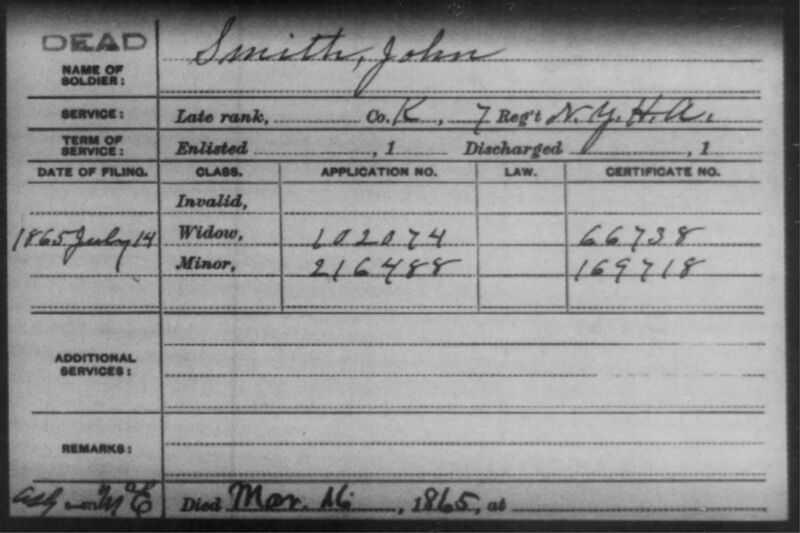 DEAD
NAME OF SOLDIER: Smith, John
SERVICE: Late rank, Co. K, 7 Reg't N.Y.H.A.
TERM OF SERVICE: Enlisted , 1 Discharged , 1
DATE OF FILING. CLASS. APPLICATION NO. LAW. CERTIFICATE NO.
Invalid,
1865 July 14 Widow, 102074 66738
Minor, 216488 169718
ADDITIONAL SERVICES:
REMARKS:
Died Mar. , 1865, at